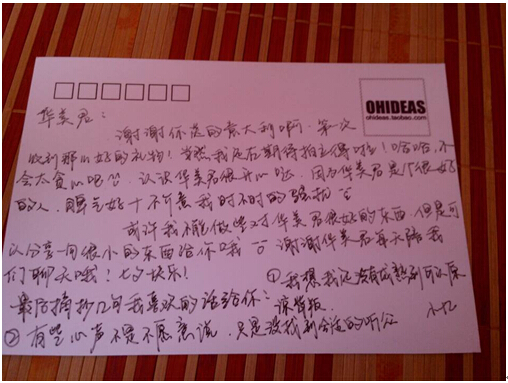 OHIDEAS
ohideas.taobao.com
华美君:
谢谢你送的意大利啊,第一次
收到那么好的礼物!当然我还后期待拍立得啦!哈哈,不
会太贪心吧 认识华美君很开心哒,因为华美君是个很好
的人,脾气好 不介意我时不时的骚扰
或许我不能做些对华美君很好的东西,但是可
以分享一用很小的东西给你哦 谢谢华美君每天陪我
们聊天哦!七夕快乐! ①我想我还没有成熟到可以原
最后摘抄几句我喜欢的话给你: 谅背叛.
②有些心声不是不愿意说,只是没找到合适的听众